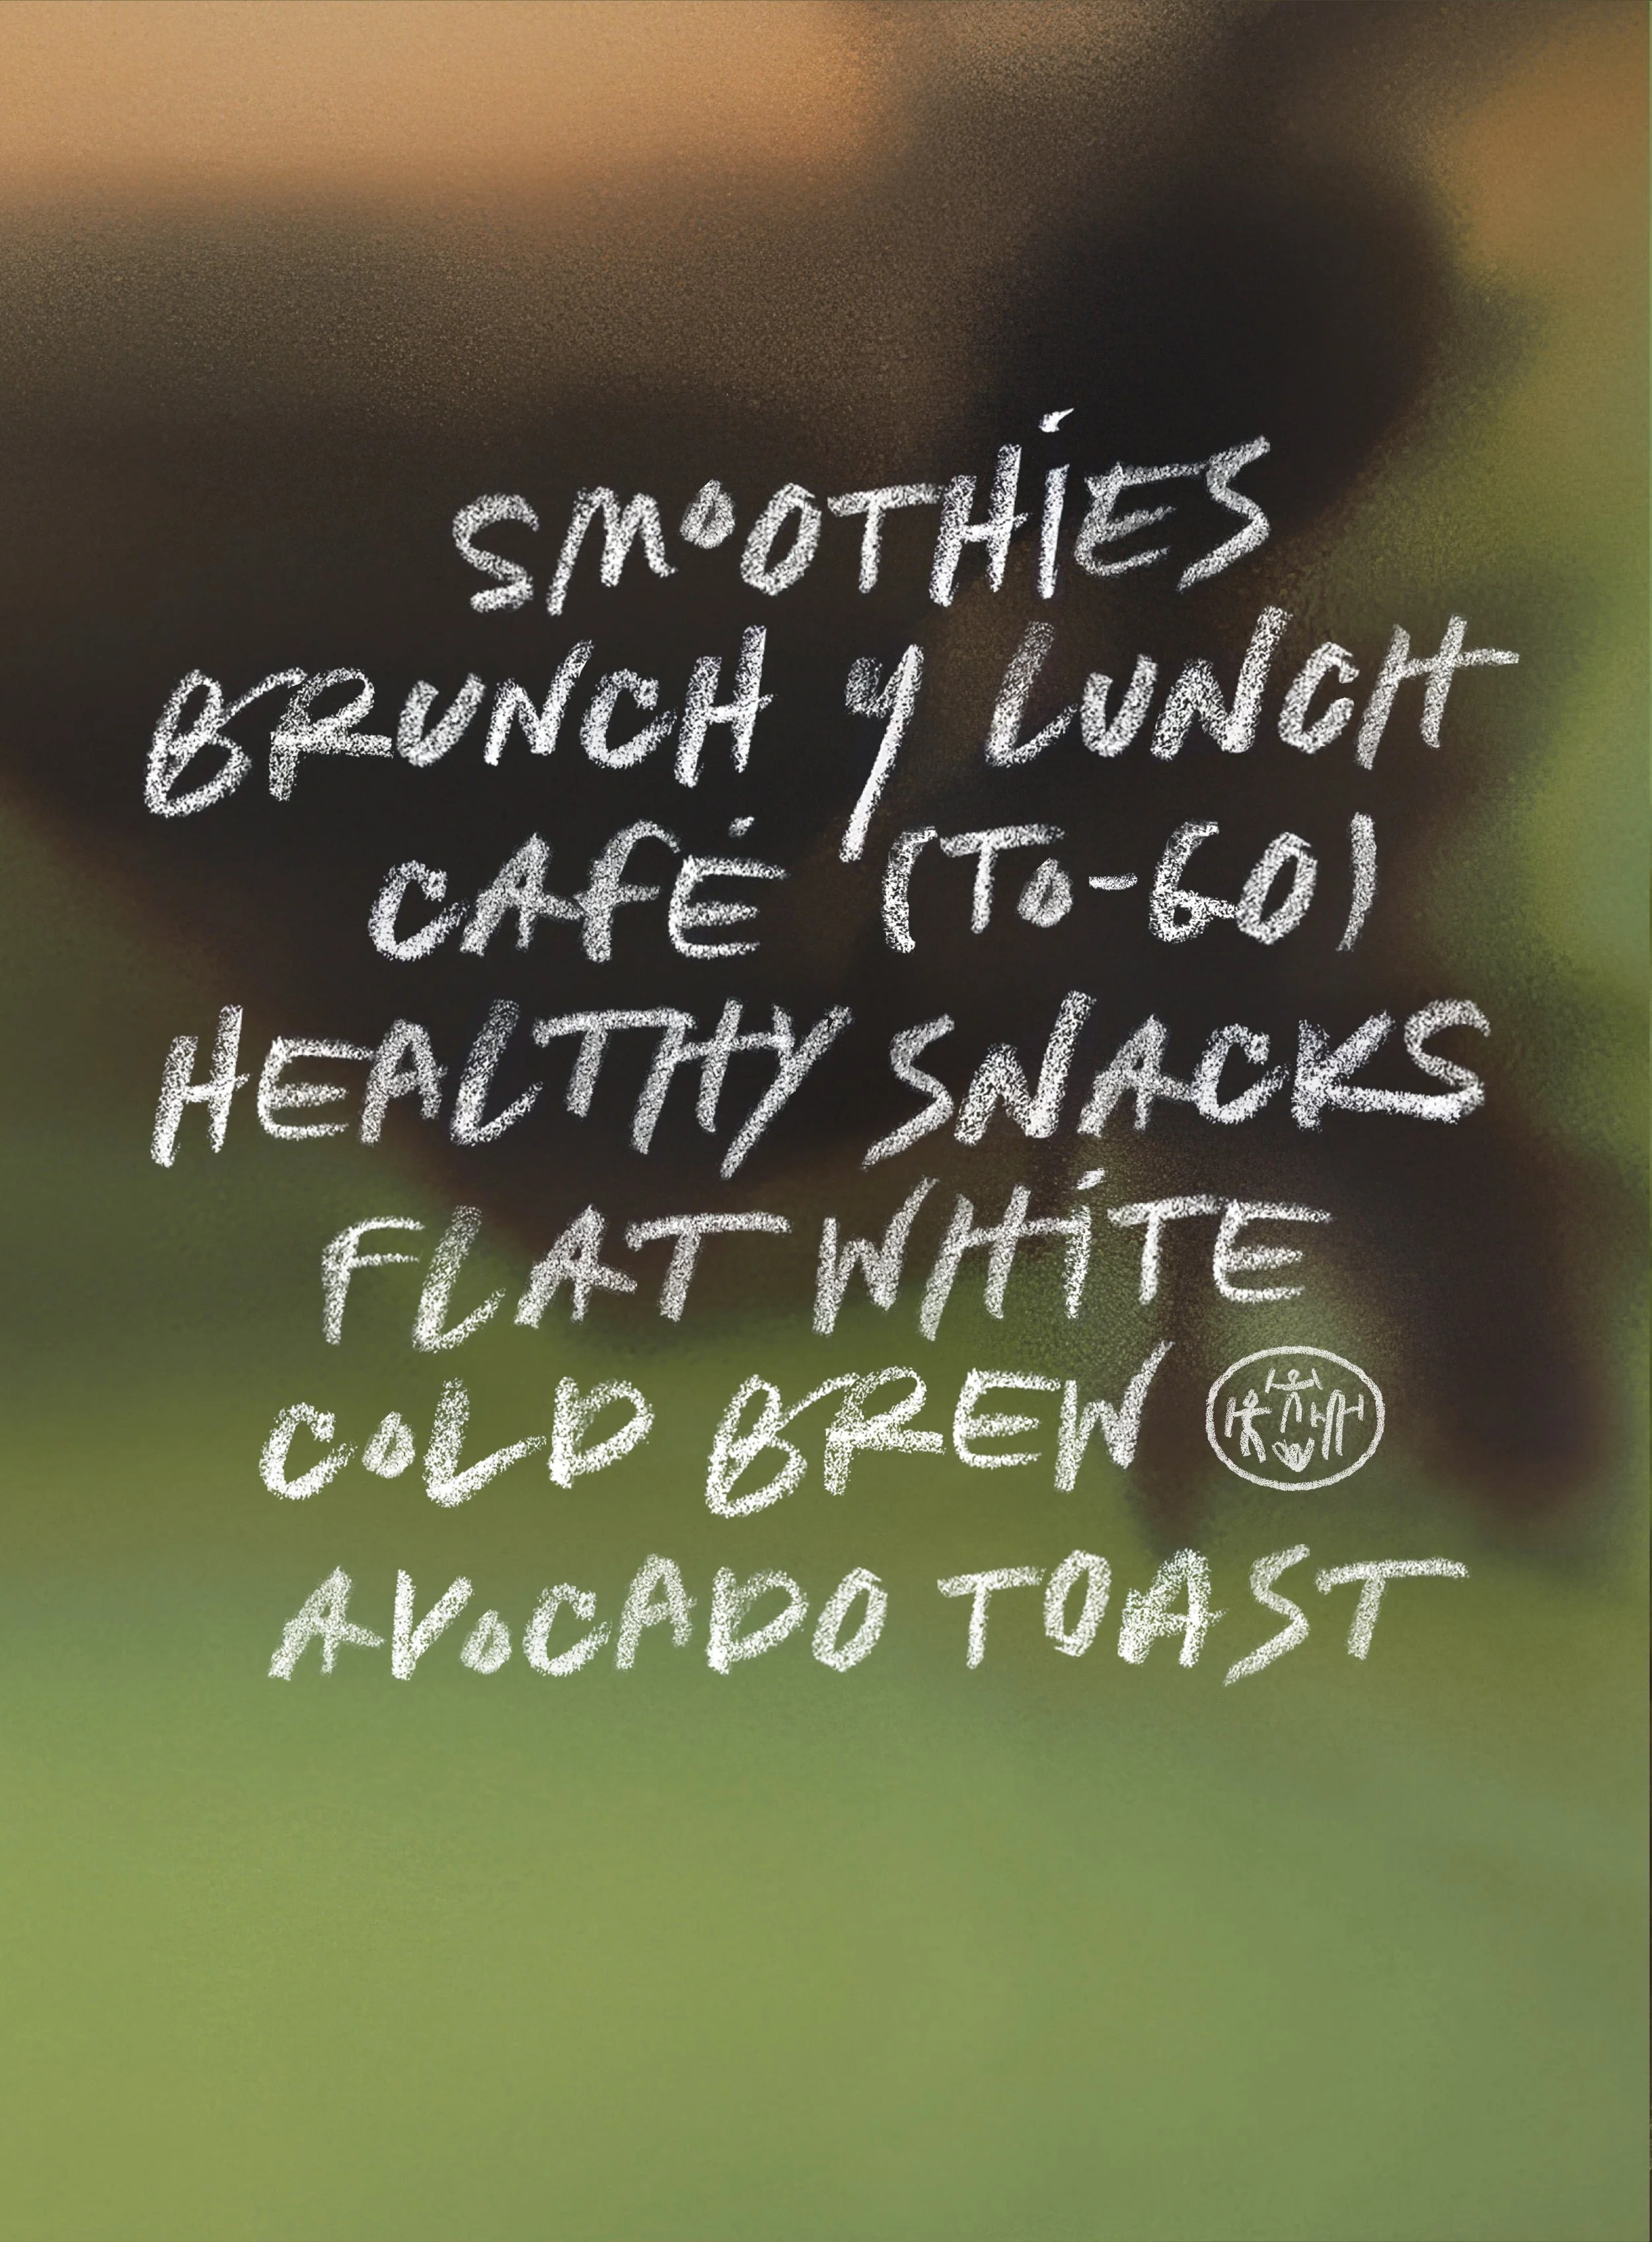 SMOOTHIES
BRUNCH Y LUNCH
CAFÉ (TO-GO)
HEALTHY SNACKS
FLAT WHITE
COLD BREW
AVOCADO TOAST